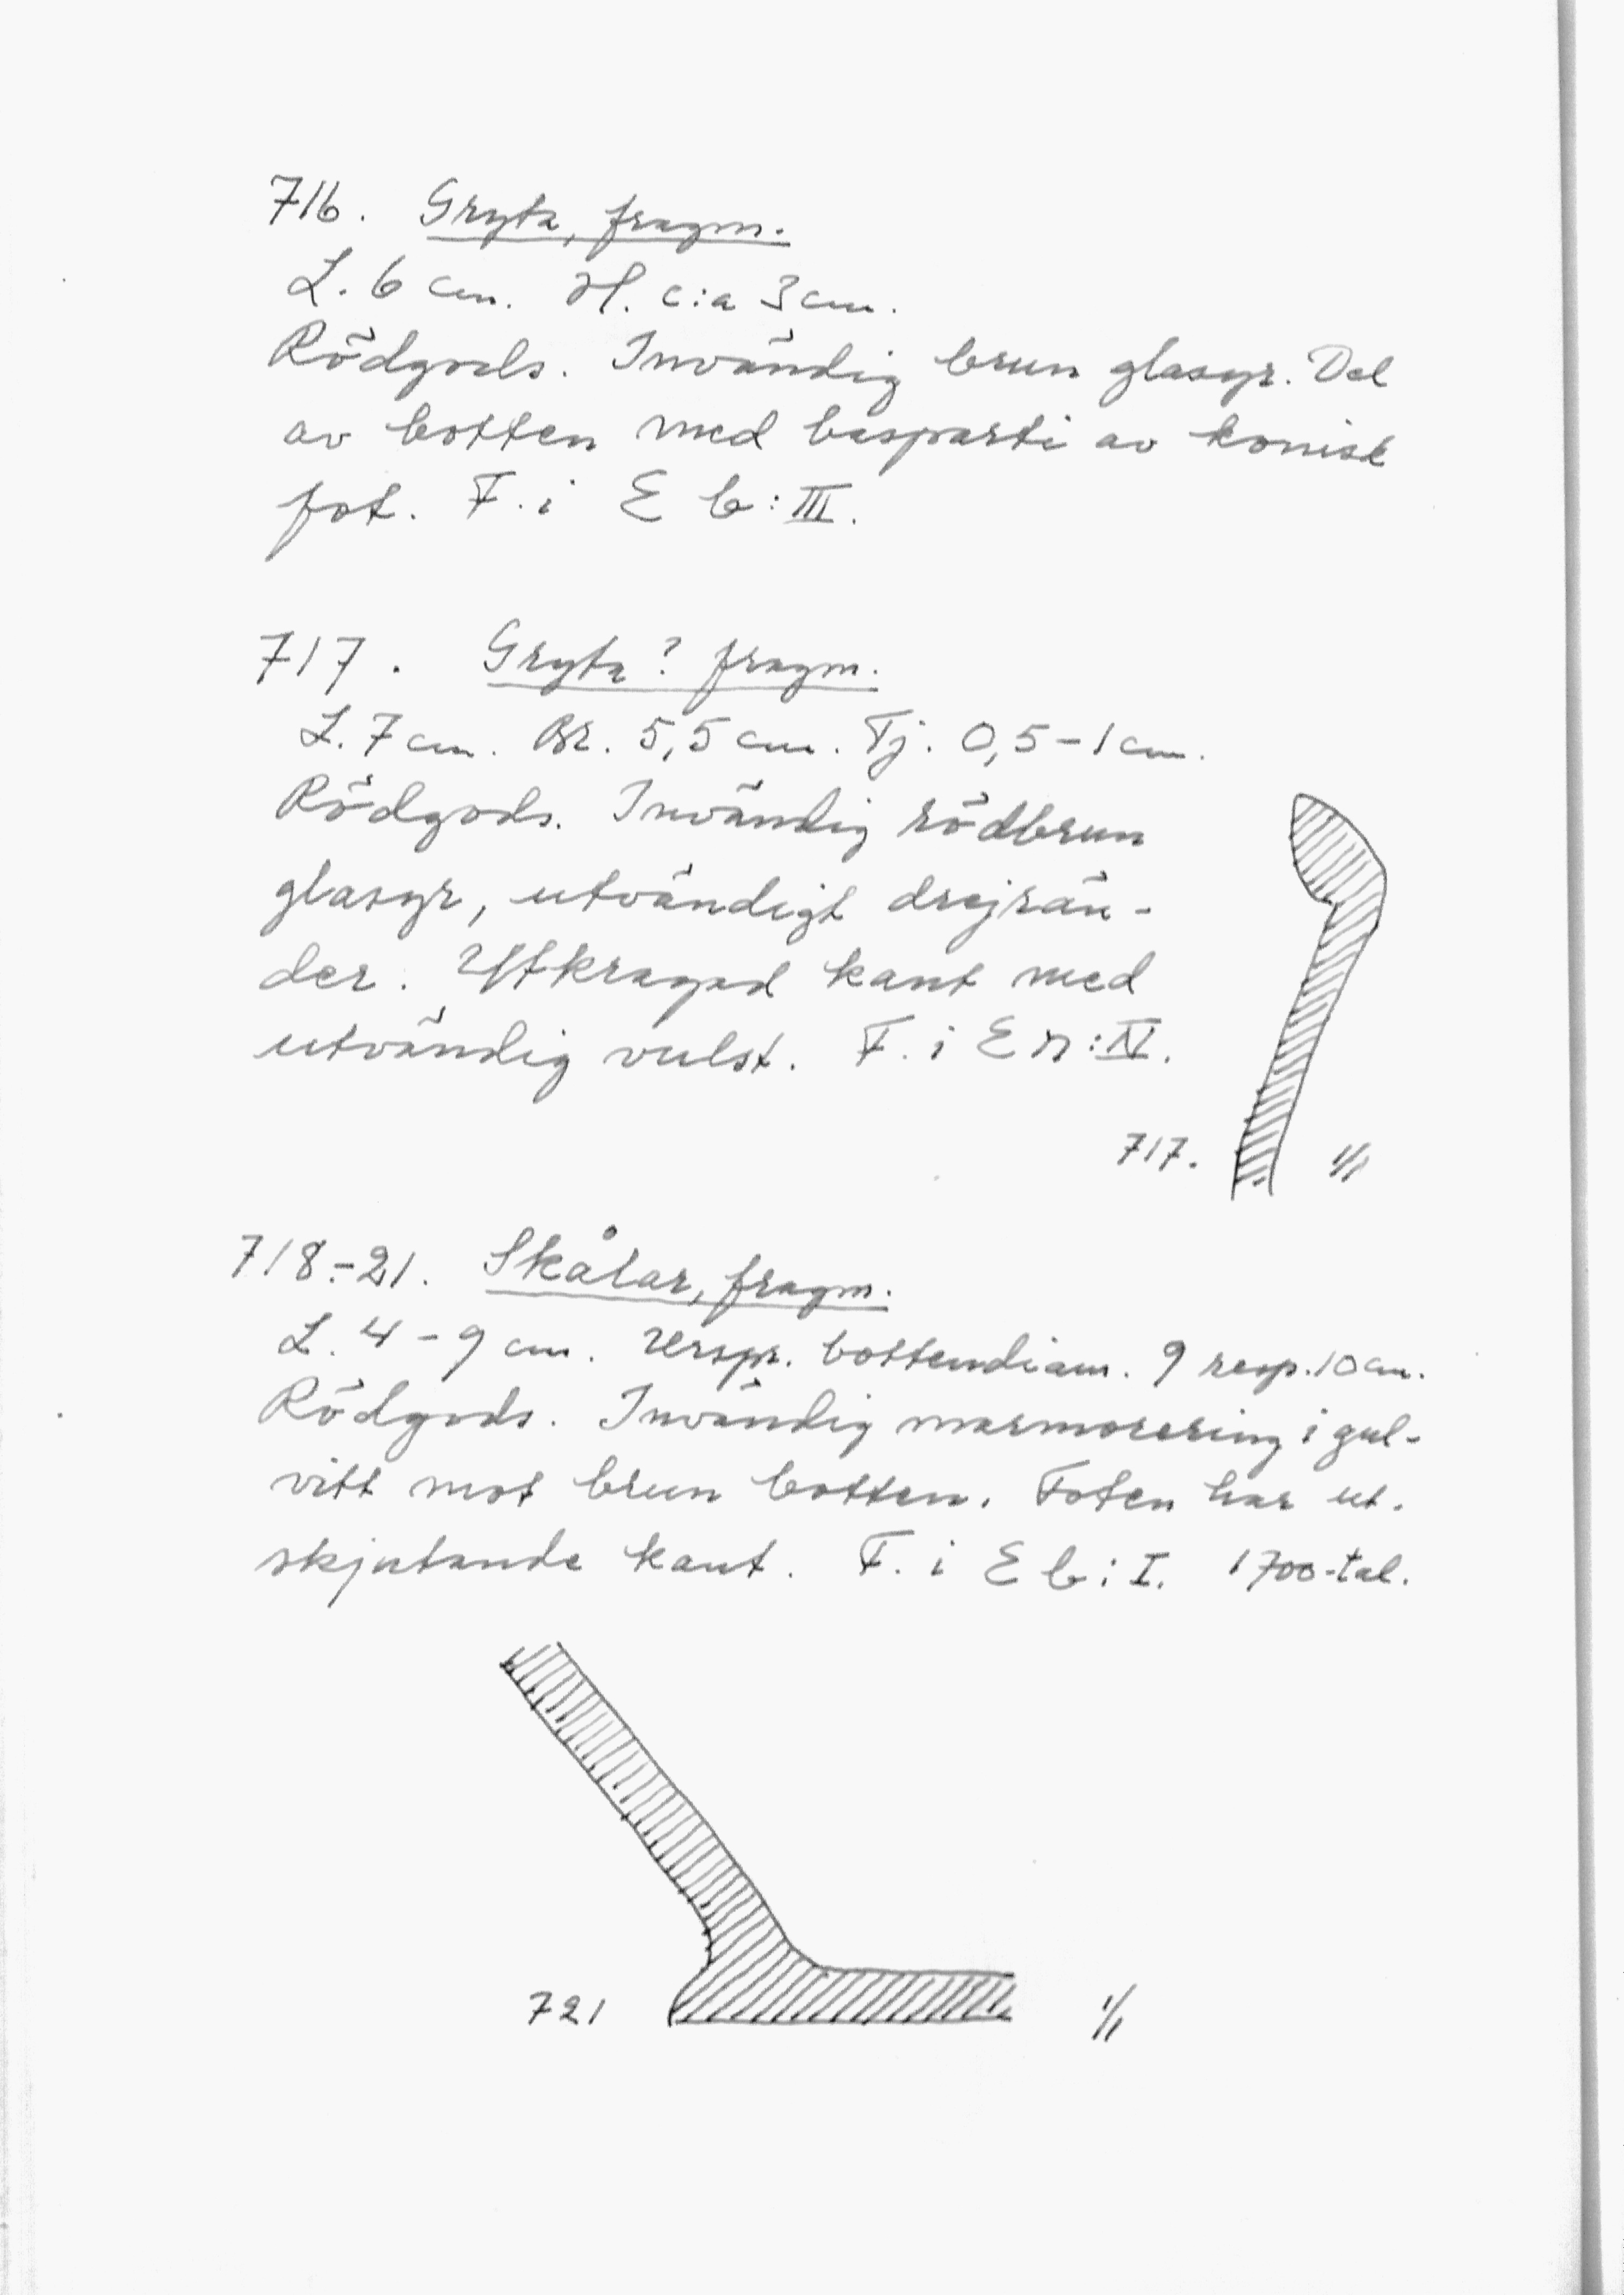 716. Gryta, fragm.
L. 6 cm. H. c:a 3 cm.
Rödgods. Invändig brun glasyr. Del
av botten med basparti av konisk
fot. F. i E b:III.
717. Gryta? fragm.
L. 7 cm. Br. 5,5 cm. Tj. 0,5-1 cm.
Rödgods. Invändig rödbrun
glasyr, utvändigt drejrän-
der. Utkragad kant med
utvändig vulst. F. i E n:IV.
717. 1/1
718-21. Skålar, fragm.
L. 4-9 cm. Urspr. bottendiam. 9 resp. 10 cm.
Rödgods. Invändig marmorering i gul-
vitt mot brun botten. Foten har ut-
skjutande kant. F. i E b:I. 1700-tal.
721 1/1